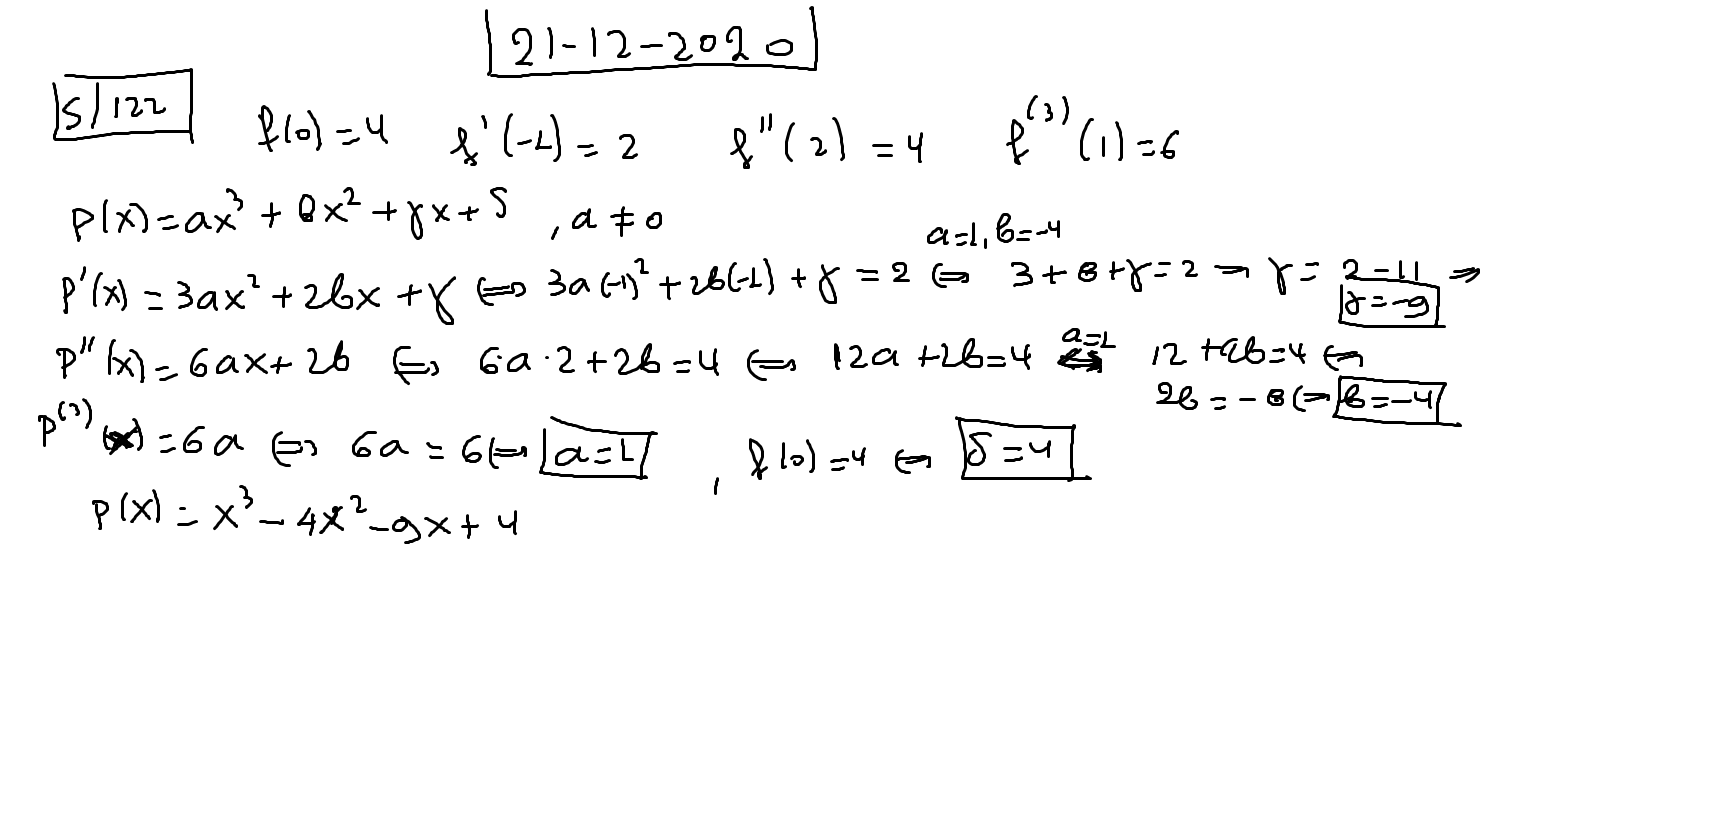 21-12-2020
5/122
f(0)=4 f'(-1)=2 f''(2)=4 f^(3)(1)=6
P(x)=ax^3+βx^2+γx+δ, a≠0
a=1, β=-4
P'(x)=3ax^2+2βx+γ ⇔ 3a(-1)^2+2β(-1)+γ=2 ⇔ 3+8+γ=2 ⇒ γ=2-11 ⇒
γ=-9
a=1
P''(x)=6ax+2β ⇔ 6·a·2+2β=4 ⇔ 12a+2β=4 ⇔ 12+2β=4 ⇔
2β=-8 ⇔ β=-4
P^(3)(x)=6a ⇔ 6a=6 ⇔ a=1, f(0)=4 ⇔ δ=4
P(x)=x^3-4x^2-9x+4